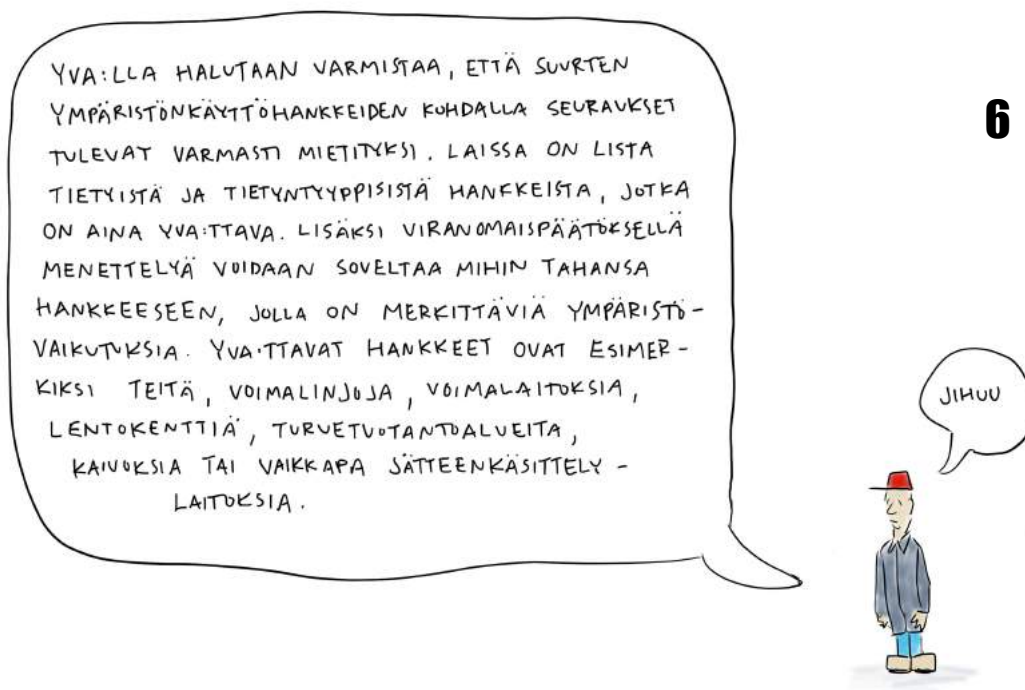 YVA:LLA HALUTAAN VARMISTAA, ETTÄ SUURTEN
YMPÄRISTÖNKÄYTTÖHANKKEIDEN KOHDALLA SEURAUKSET
TULEVAT VARMASTI MIETITYKSI. LAISSA ON LISTA
TIETYISTÄ JA TIETYNTYYPPISISTÄ HANKKEISTA, JOTKA
ON AINA YVA:TTAVA. LISÄKSI VIRANOMAISPÄÄTÖKSELLÄ
MENETTELYÄ VOIDAAN SOVELTAA MIHIN TAHANSA
HANKKEESEEN, JOLLA ON MERKITTÄVIÄ YMPÄRISTÖ-
VAIKUTUKSIA. YVA:TTAVAT HANKKEET OVAT ESIMER-
KIKSI TEITÄ, VOIMALINJOJA, VOIMALAITOKSIA,
LENTOKENTTIÄ, TURVETUOTANTOALUEITA,
KAIVOKSIA TAI VAIKKAPA JÄTTEENKÄSITTELY-
LAITOKSIA.
6
JIHUU